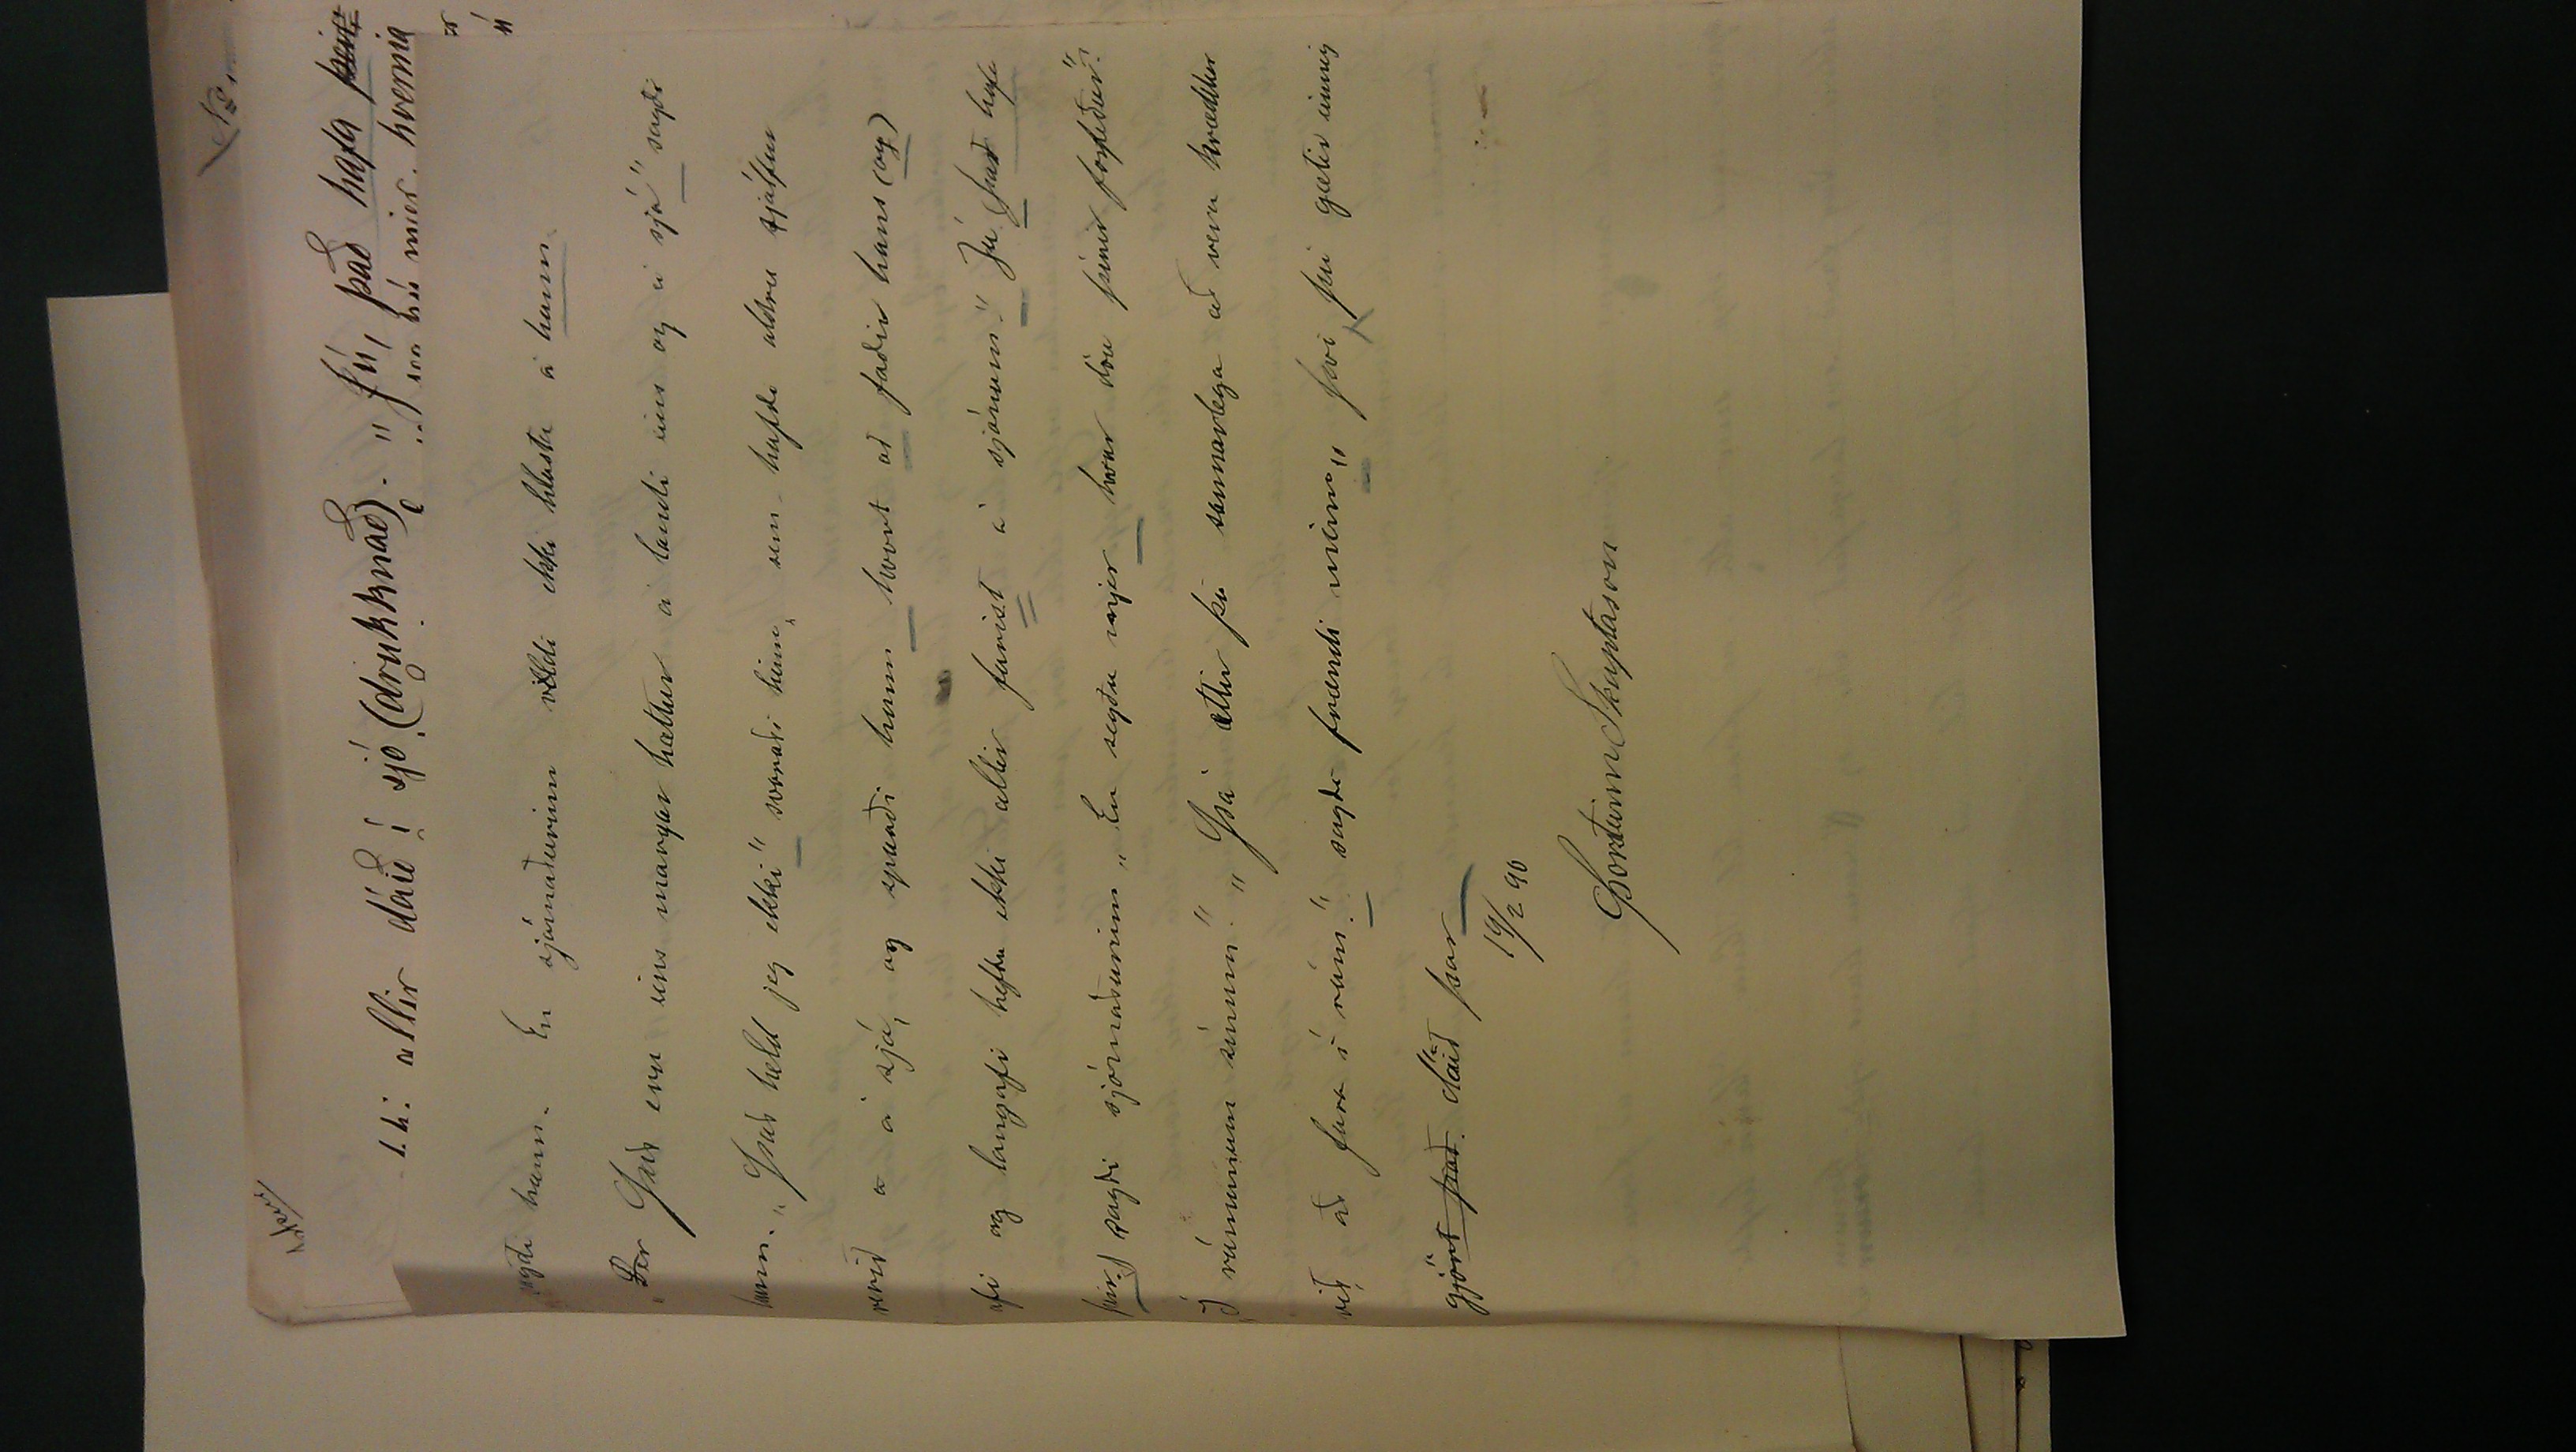 allir dáið í sjó (drukknað). " Jú, það hafa þeir
sagði hann. En sjómaðurinn vildi ekki hlusta á hann
"Þar Það eru eins margar hættur á landi eins og á sjó" sagði
hann. "Það held jeg ekki" svaraði hinn, sem hafði aldrei sjálfur
verið á sjó, og spurði hann hvort að faðir hans (og)
afi og langafi hefðu ekki allir farist á sjónum." Jú (það hafa
þeir) sagði sjómaðurinn "En segðu mjer hvar dóu þínir forfeður"?
Í rúmunum sínum." "Þá ættir þú sannarlega að vera hræddur
við að fara í rúm." sagði frændi minn" því þú gætir einnig
gjört það. dáið þar
19/2 90
Þorsteinn Skaptason